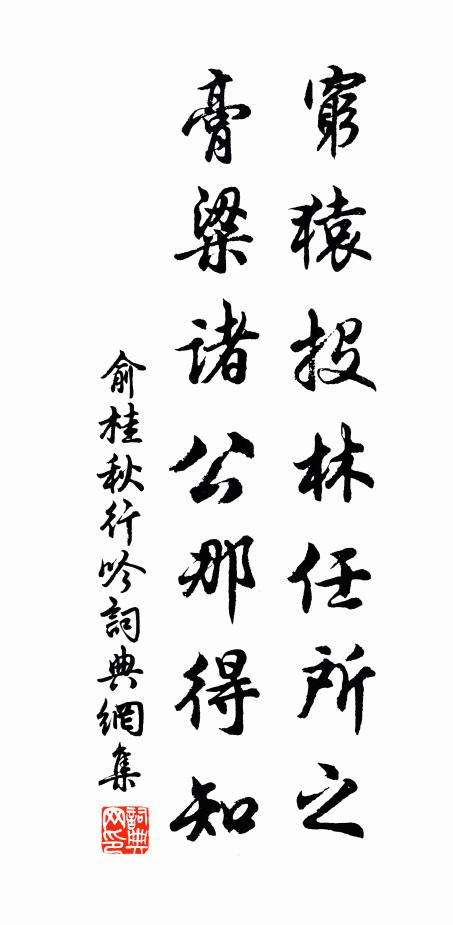 窮猿投林任所之
膏粱诸公那得知
俞桂秋行吟詞典網集
詞典网印